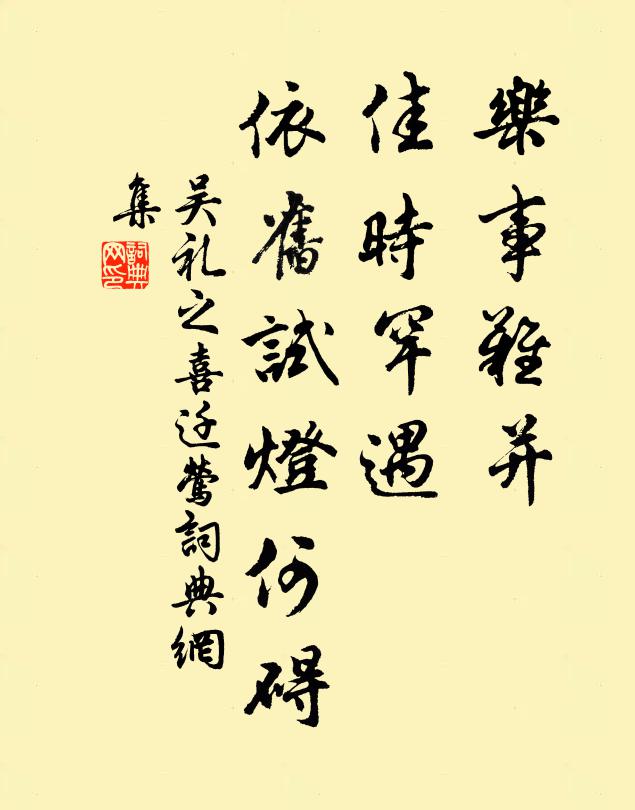 樂事難并
佳時罕遇
依舊試燈何碍
吴礼之喜迁鶯詞典網
集
詞典网印